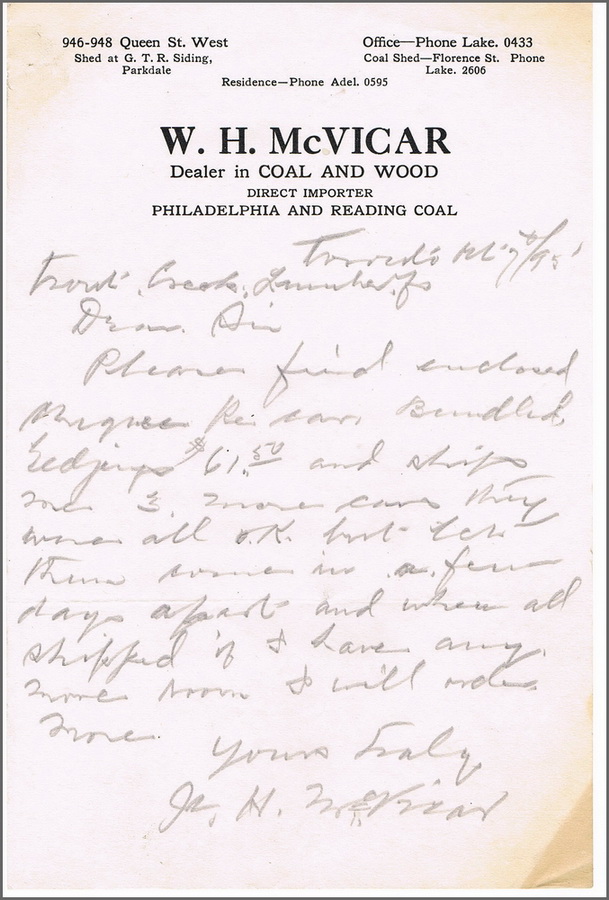 946-948 Queen St. West
Shed at G. T. R. Siding,
Parkdale
Office—Phone Lake. 0433
Coal Shed—Florence St. Phone
Lake. 2606
Residence—Phone Adel. 0595
W. H. McVICAR
Dealer in COAL AND WOOD
DIRECT IMPORTER
PHILADELPHIA AND READING COAL
Toronto
Trout Creek
Dear Sir
Please find enclosed
Re car Bundled
Eedjings $61.50 and ship
me 3 more cars they
were all O.K. but let
them come in a few
days apart and when all
shipped if I have any
more room I will order
more
Yours Truly
W. H. McVicar